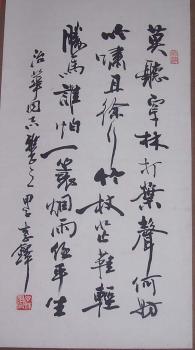 莫聽穿林打葉聲何妨
吟嘯且徐行竹杖芒鞋輕
勝馬誰怕一蓑烟雨任平生
治華同志 李鐸